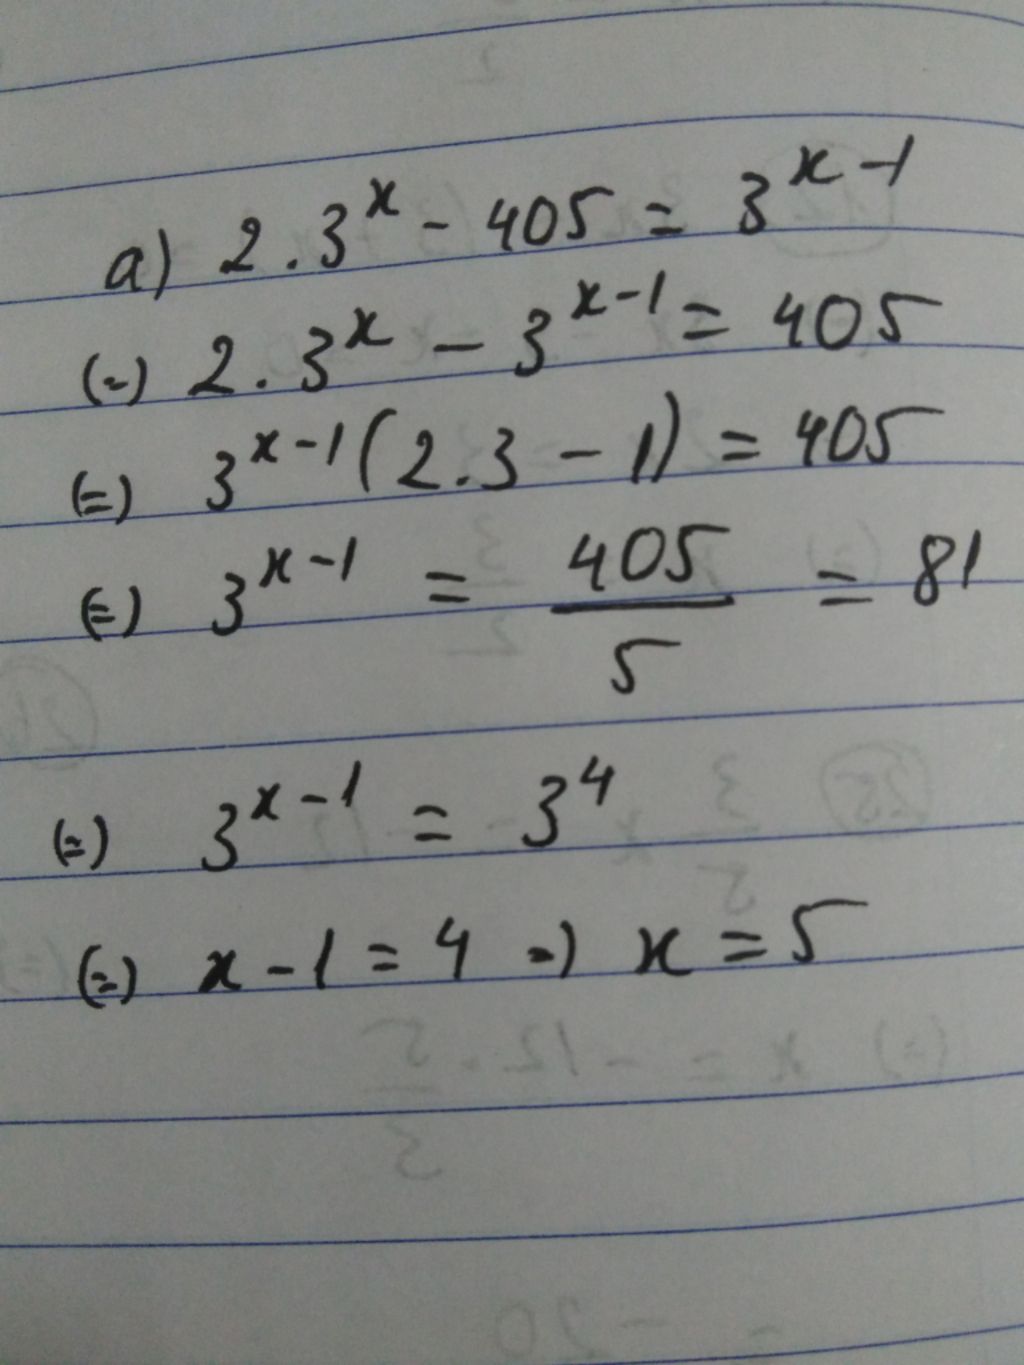 a) 2.3^x - 405 = 3^x-1
(=) 2.3^x - 3^x-1 = 405
(=) 3^x-1 (2.3 - 1) = 405
(=) 3^x-1 = 405/5 = 81
(=) 3^x-1 = 3^4
(=) x - 1 = 4 =) x = 5